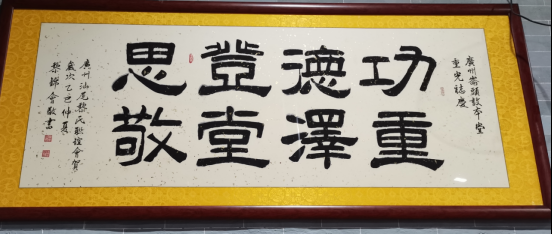 廣州崙頭敦本堂
重光誌慶
功重
德澤
登堂
思敬
廣州汕尾黎氏聯誼會賀
歲次乙巳仲夏
敬書